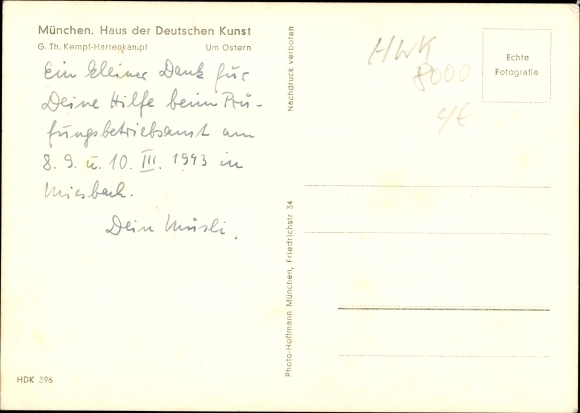 München. Haus der Deutschen Kunst
G. Th. Kempf-Hartenkampf Um Ostern
Ein kleiner Dank für
Deine Hilfe beim Prü-
fungsbetriebsamt am
8. 9. u. 10. III. 1943 in
Miesbach.
Dein Müsli.
HDK 396
Nachdruck verboten
Photo-Hoffmann München, Friedrichstr 34
HWK
8000
Echte
Fotografie